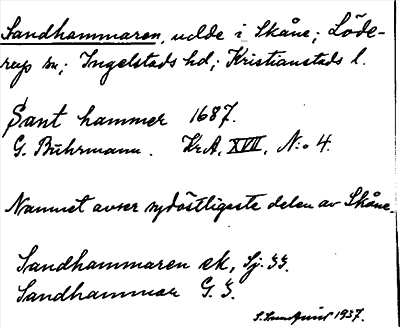 Sandhammaren, udde i Skåne; Löde-
rup sn; Ingelstads hd; Kristianstads l.
Sant hammer 1687.
G. Buhrmann. KrA, XVII, N:o 4.
Namnet avser sydöstligaste delen av Skåne.
Sandhammaren ek, Sj. 
Sandhammar G. 
1937.